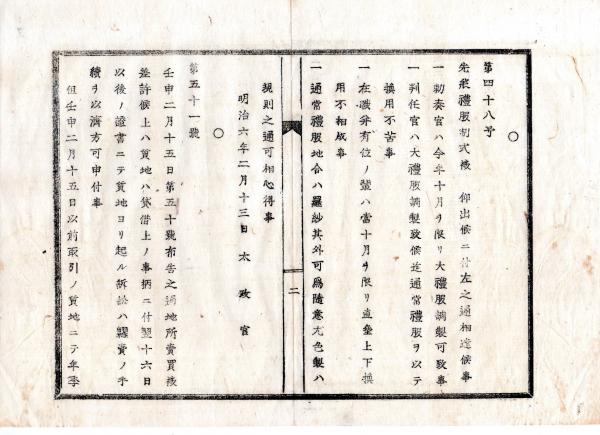 ○
第四十八号
先般禮服制式被　仰出候ニ付左之通相達候事
一勅奏官ハ今年十月ヲ限リ大禮服調製可致事
一判任官ハ大禮服調製致候迄通常禮服ヲ以テ
換用不苦事
一在職并有位ノ輩ハ當十月ヲ限リ直垂上下換
用不相成事
一通常禮服地合ハ羅紗其外可爲随意尤色製ハ
二
規則之通可相心得事
明治六年二月十三日　太政官
○
第五十一號
壬申二月十五日第五十號布告之通地所賣買被
差許候上ハ質地ハ貸借上ノ事柄ニ付翌十六日
以後ノ證書ニテ質地ヨリ起ル訴訟ハ糶賣ノ手
續ヲ以濟方可申付事
但壬申二月十五日以前取引ノ質地ニテ年季